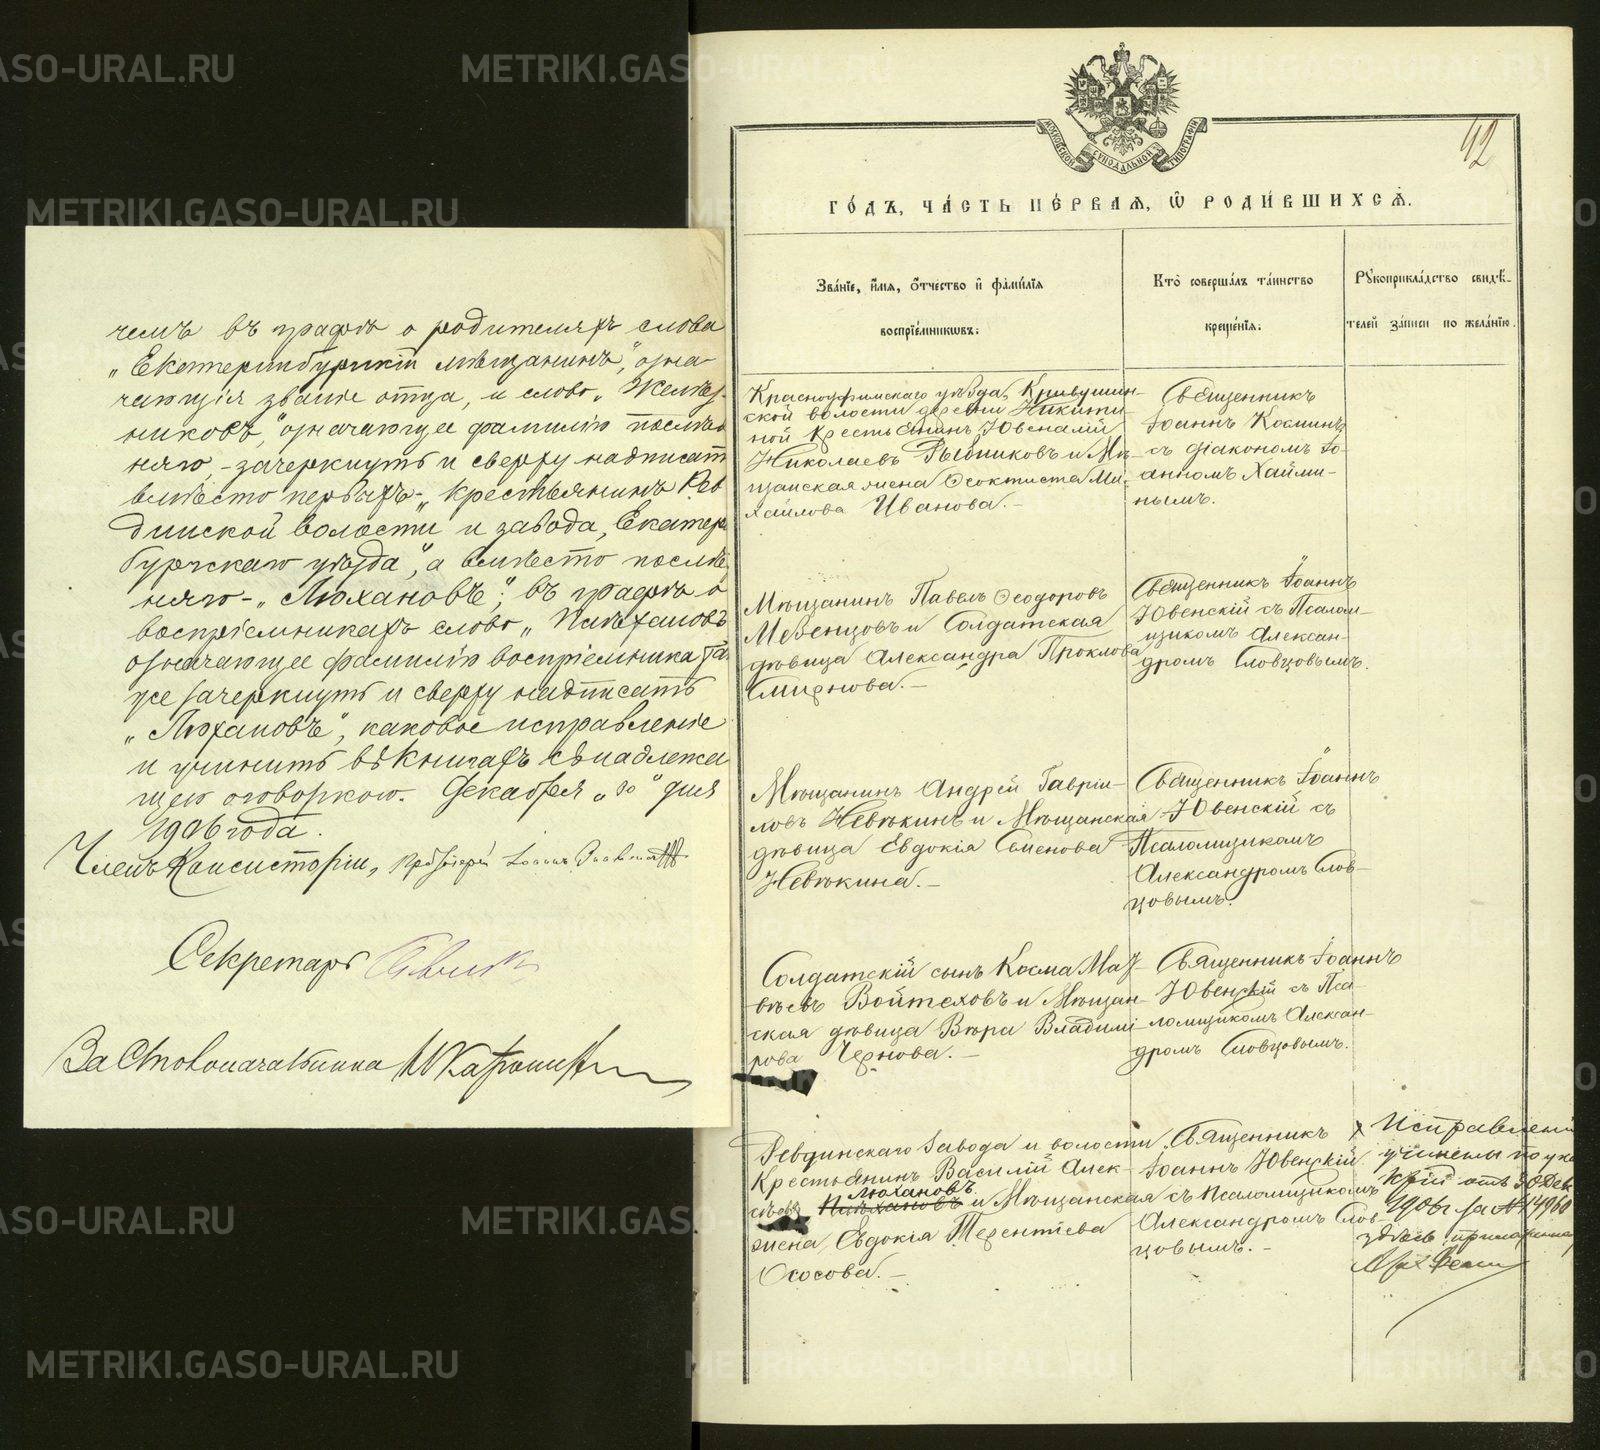 чемъ въ графѣ о родителяхъ слова
„Екатеринбургскій мѣщанинъ“, озна-
чающія званіе отца, и слово „Желѣз-
никовъ“, означающее фамилію послѣд
няго – зачеркнуть и сверху надписат
вмѣсто первыхъ – „крестьянинъ Рев
динской волости и завода, Екатер
бургскаго уѣзда“, а вмѣсто послѣд
няго – „Люхановъ“; въ графѣ о
воспріемникахъ слово „Плѣхановъ
означающее фамилію воспріемника та
же зачеркнуть и сверху надписать
„Люхановъ“, каковое исправленіе
и учинить въ книгахъ съ надлежа
щею оговоркою. Декабря „30“ дня
1906 года.
Членъ Консисторіи,
Секретарь
За Столоначальника
42
МОСКОВСКОЙ СѴНОДАЛЬНОЙ ТИПОГРАФІИ
ГОДЪ, ЧАСТЬ ПЕРВАЯ, Ѿ РОДИВШИХСЯ.
Званіе, имя, отчество и фамилія
воспріемниковъ:
Кто совершалъ таинство
крещенія:
Рукоприкладство свидѣ-
телей записи по желанію.
Красноуфимскаго уѣзда, Кривушин-
ской волости деревни Никити-
ной крестьянинъ Ювеналій
Николаевъ Рыбниковъ и Мѣ-
щанская жена Ѳеоктиста Ми-
хайлова Иванова. –
Священникъ
Іоаннъ Косминъ
съ діакономъ Іо-
анномъ Хайми-
нымъ.
Мѣщанинъ Павелъ Ѳеодоровъ
Мевенцовъ и Солдатская
дѣвица Александра Проклова
Смирнова. –
Священникъ Іоаннъ
Ювенскій съ Псалом-
щикомъ Алексан-
дромъ Словцовымъ.
Мѣщанинъ Андрей Гавріи-
ловъ Невѣкинъ и Мѣщанская
дѣвица Евдокія Семенова
Невѣкина. –
Священникъ Іоаннъ
Ювенскій съ
Псаломщикомъ
Александромъ Слов-
цовымъ.
Солдатскій сынъ Косма Мат-
вѣевъ Войтеховъ и Мѣщан-
ская дѣвица Вѣра Владимі-
рова Чернова. –
Священникъ Іоаннъ
Ювенскій съ Пса-
ломщикомъ Алексан-
дромъ Словцовымъ.
Ревдинскаго завода и волости
Крестьянинъ Василій Алек-
Люхановъ
сѣевъ Плѣхановъ и Мѣщанская
жена Евдокія Терентіева
Ососова. –
Священникъ
Іоаннъ Ювенскій
съ псаломщикомъ
Александромъ Слов-
цовымъ. –
х Исправленія
учинены по ука
отъ 30 Дек
1906 г за № 14960
здѣсь